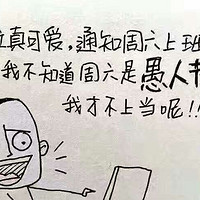 位真可爱,通知周六上班
我不知道周六是愚人节
我才不上当呢!!